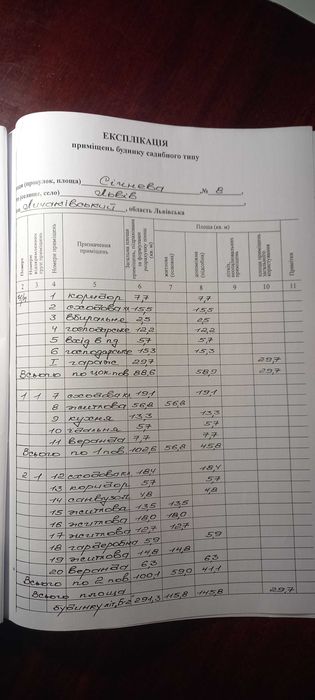 ЕКСПЛІКАЦІЯ
приміщень будинку садибного типу
(провулок, площа) Січнева № 8
(селище, село) Львів
Личаківський, область Львівська
Номери приміщень
Призначення приміщень
Площа (кв. м)
житлова (основна)
Примітки
2 3 4 5 6 7 8 9 10 11
1 коридор 7,7 7,7
2 сходова кл 15,5 15,5
3 вбиральня 2,5 2,5
4 господарське 12,2 12,2
5 вхід в пд 5,7 5,7
6 господарське 15,3 15,3
7 гараж 29,7 29,7
Всього по цок.пов 88,6 58,9 29,7
1 1 7 сходова кл 19,1 19,1
8 житлова 56,8 56,8
9 кухня 13,3 13,3
10 їдальня 5,7 5,7
11 веранда 7,7 7,7
Всього по 1 пов. 102,6 56,8 45,8
2 1 12 сходова кл 18,4 18,4
13 коридор 5,7 5,7
14 санвузол 4,8 4,8
15 житлова 13,5 13,5
16 житлова 18,0 18,0
17 житлова 12,7 12,7
18 гардеробна 5,9 5,9
19 житлова 14,8 14,8
20 веранда 6,3 6,3
Всього по 2 пов. 100,1 59,0 41,1
Всього площа
будинку літ,Б-2 291,3 115,8 145,8 29,7